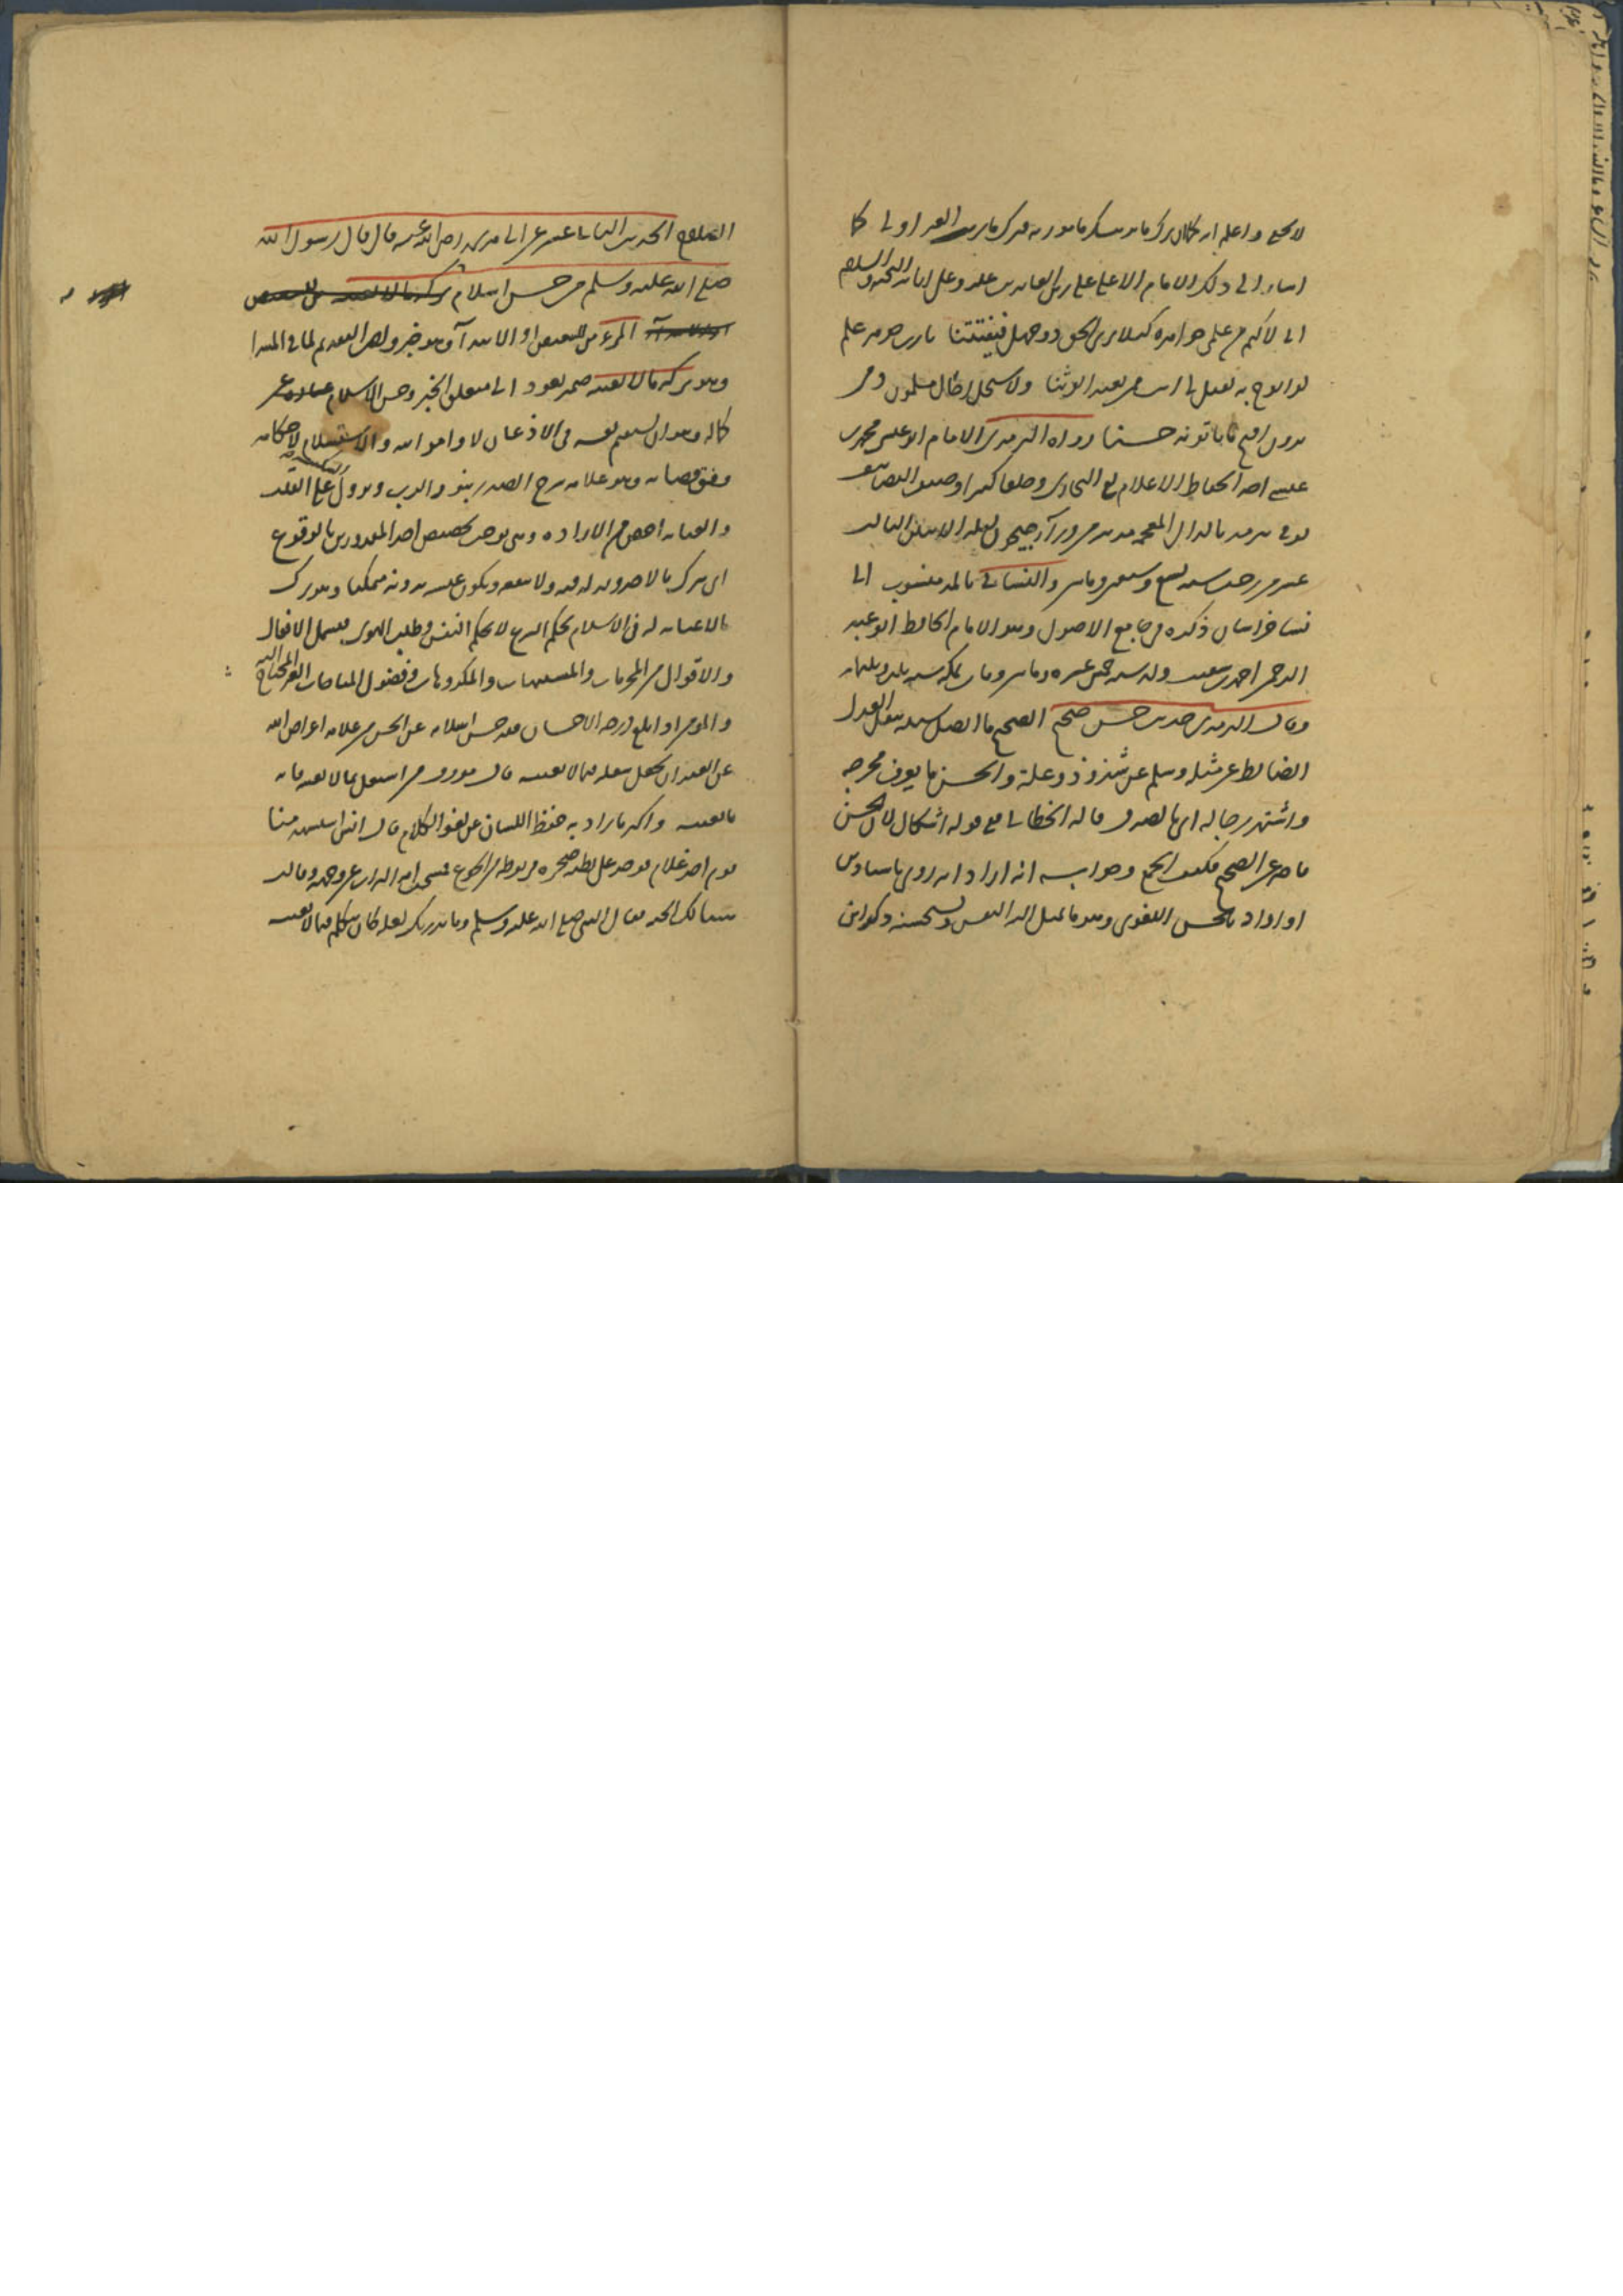 لا يخفى واعلم انه كما ان ترك ما يريب ما مور به فترك ما يريب الغير اولى كما
اشار الى ذلك الامام الاعلى على زين العابدين عليه وعلى ابائه التحية والسلام
انى لاكتم من علمى جواهره كيلا يرى الحق ذو جهل فيفتتنا يا رب جوهر علم
لو ابوح به لقيل لى انت ممن يعبد الوثنا ولاستحل رجال مسلمون دمى
يرون اقبح ما ياتونه حسنا رواه الترمذى الامام ابو عيسى محمد بن
عيسى احد الحفاظ الاعلام لقى البخارى وخلقا كثيرا وصنف التصانيف
توفى بترمذ بالدال المعجمة مدينة من وراء جيحون ليلة الاثنين الثالث
عشر من رجب سنة تسع وسبعين ومائتين والنسائى بالمد منسوب الى
نسا خراسان ذكره فى جامع الاصول وهو الامام الحافظ ابو عبد
الرحمن احمد بن شعيب ولد سنة خمس عشرة ومائتين ومات بمكة سنة ثلث وثلثمائة
وقال الترمذى حديث حسن صحيح الصحيح ما اتصل سنده بنقل العدل
الضابط عن مثله وسلم عن شذوذ وعلة والحسن ما يعرف مخرجه
واشتهر رجاله اى بالصدق قاله الخطابى فى قوله اشكال لان الحسن
قاصر عن الصحيح فكيف الجمع وجوابه انه اراد انه روى باسنادين
او اراد بالحسن اللغوى وهو ما تميل اليه النفس وتستحسنه ذكره ابن
الصلاح الحديث الثانى عشر عن ابى هريرة رضى الله عنه قال قال رسول الله
صلى الله عليه وسلم من حسن اسلام تركه ما لا يعنيه من للتبعيض
او للابتداء المرء من للتبعيض او الابتداء وهو خبر ولعل التقديم لما فى المبتدا
وهو تركه ما لا يعنيه ضمير يعود الى متعلق الخبر وحسن الاسلام عبارة عن
كماله وهو ان يستقيم نفسه فى الاذعان لاوامر الله والاستسلام لاحكامه
وفق قضائه وهو علامة شرح الصدر بنور الرب ونزول السكينة على القلب
والعناية اخص من الارادة وهى توجب تخصيص احد المقدورين بالوقوع
اى ترك ما لا ضرورة له فيه ولا منفعة ويكون عيشه بدونه ممكنا وهو ترك
ما لا عناية له فى الاسلام بحكم الشرع لا بحكم النفس وطلب الهوى فيشمل الافعال
والاقوال من المحرمات والمشتبهات والمكروهات وفضول المباحات الغير المحتاج اليه
والمؤمن اذا بلغ درجة الاحسان فقد حسن اسلامه عن الحسن من علامة اعراض الله
عن العبد ان يجعل شغله فيما لا يعنيه قال مورق من اشتغل بما لا يعنيه فاته
ما يعنيه واكثر ما يراد به حفظ اللسان عن لغو الكلام قال انس استشهد منا
يوم احد غلام فوجد على بطنه صخرة مربوطة من الجوع فمسحت امه التراب عن وجهه وقالت
هنيئا لك الجنة فقال النبى صلى الله عليه وسلم وما يدريك لعله كان يتكلم فيما لا يعنيه